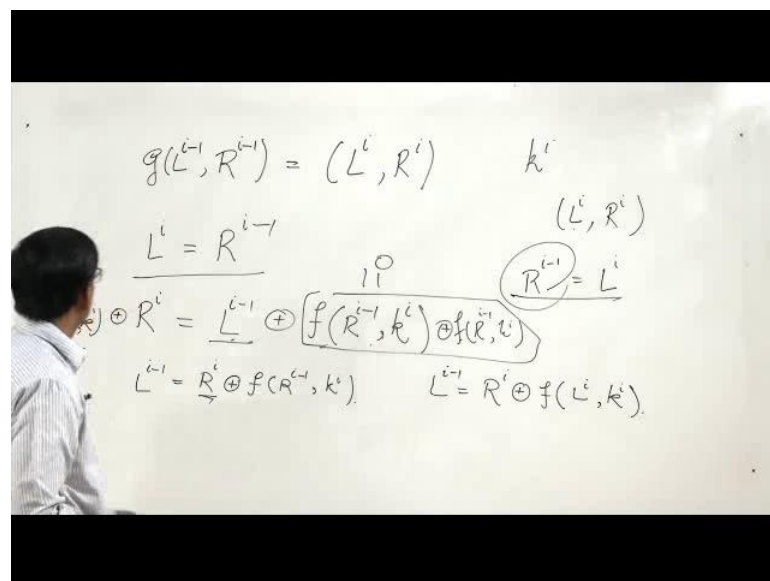 g(L^{i-1}, R^{i-1}) = (L^i, R^i)    k^i
(L^i, R^i)
L^i = R^{i-1}    R^{i-1} = L^i
0
||
) ⊕ R^i = L^{i-1} ⊕ f(R^{i-1}, k^i) ⊕ f(R^{i-1}, k^i)
L^{i-1} = R^i ⊕ f(R^{i-1}, k^i).    L^{i-1} = R^i ⊕ f(L^i, k^i).